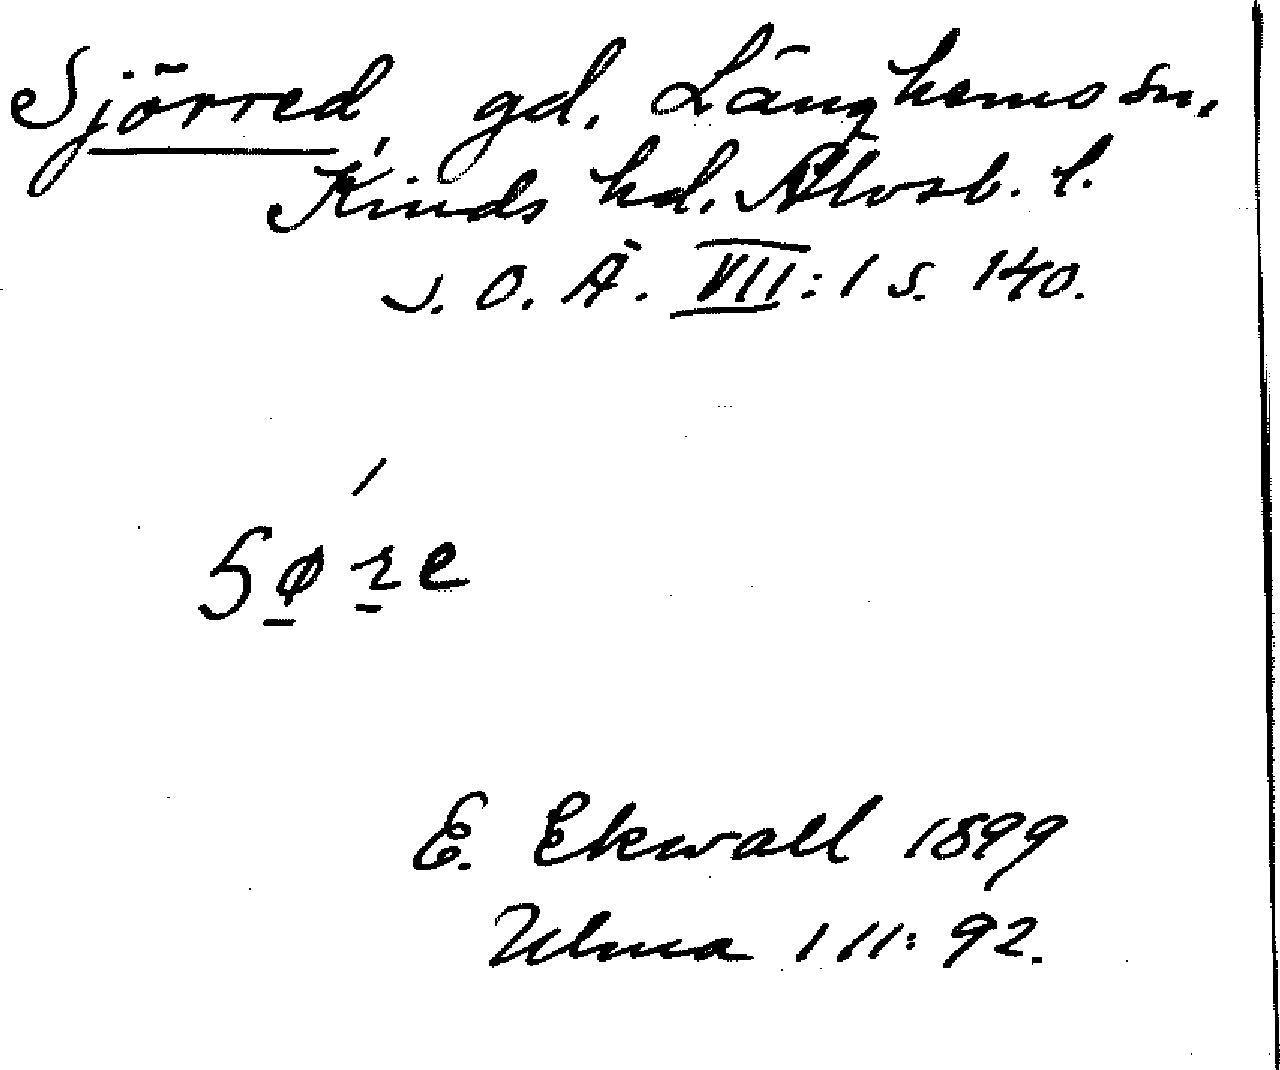 Sjörred, gd. Länghems sn,
Kinds hd. Älvsb. l.
S. O. Ä. VII: 1 s. 140.
Søre
E. Ekwall 1899
Ulma 111: 92.